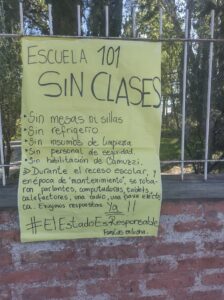 ESCUELA 101
SIN CLASES
• Sin mesas ni sillas
• Sin refrigerio
• Sin insumos de limpieza
• Sin personal de seguridad.
• Sin habilitación de Camuzzi.
Durante el receso escolar, y
en época de "mantenimiento", se roba-
ron parlantes, computadoras, tablets,
calefactores, una radio, una pava eléctri-
ca. Exigimos respuestas Ya !!
#ElEstadoEsResponsable